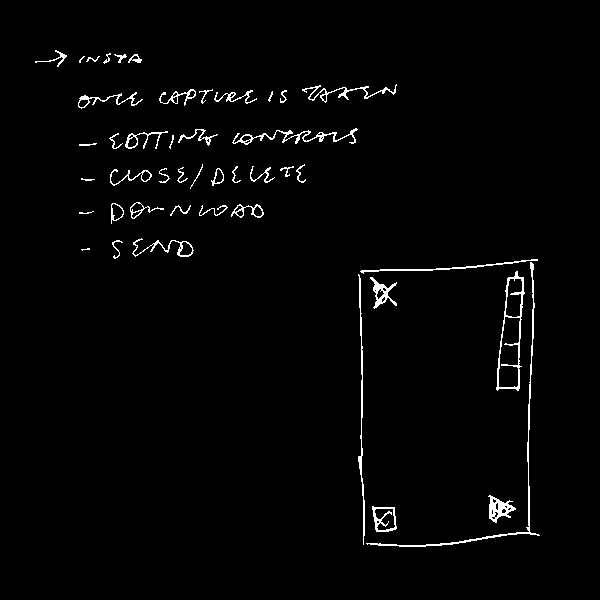 → INSTA
ONCE CAPTURE IS TAKEN
- EDITING CONTROLS
- CLOSE/DELETE
- DOWNLOAD
- SEND